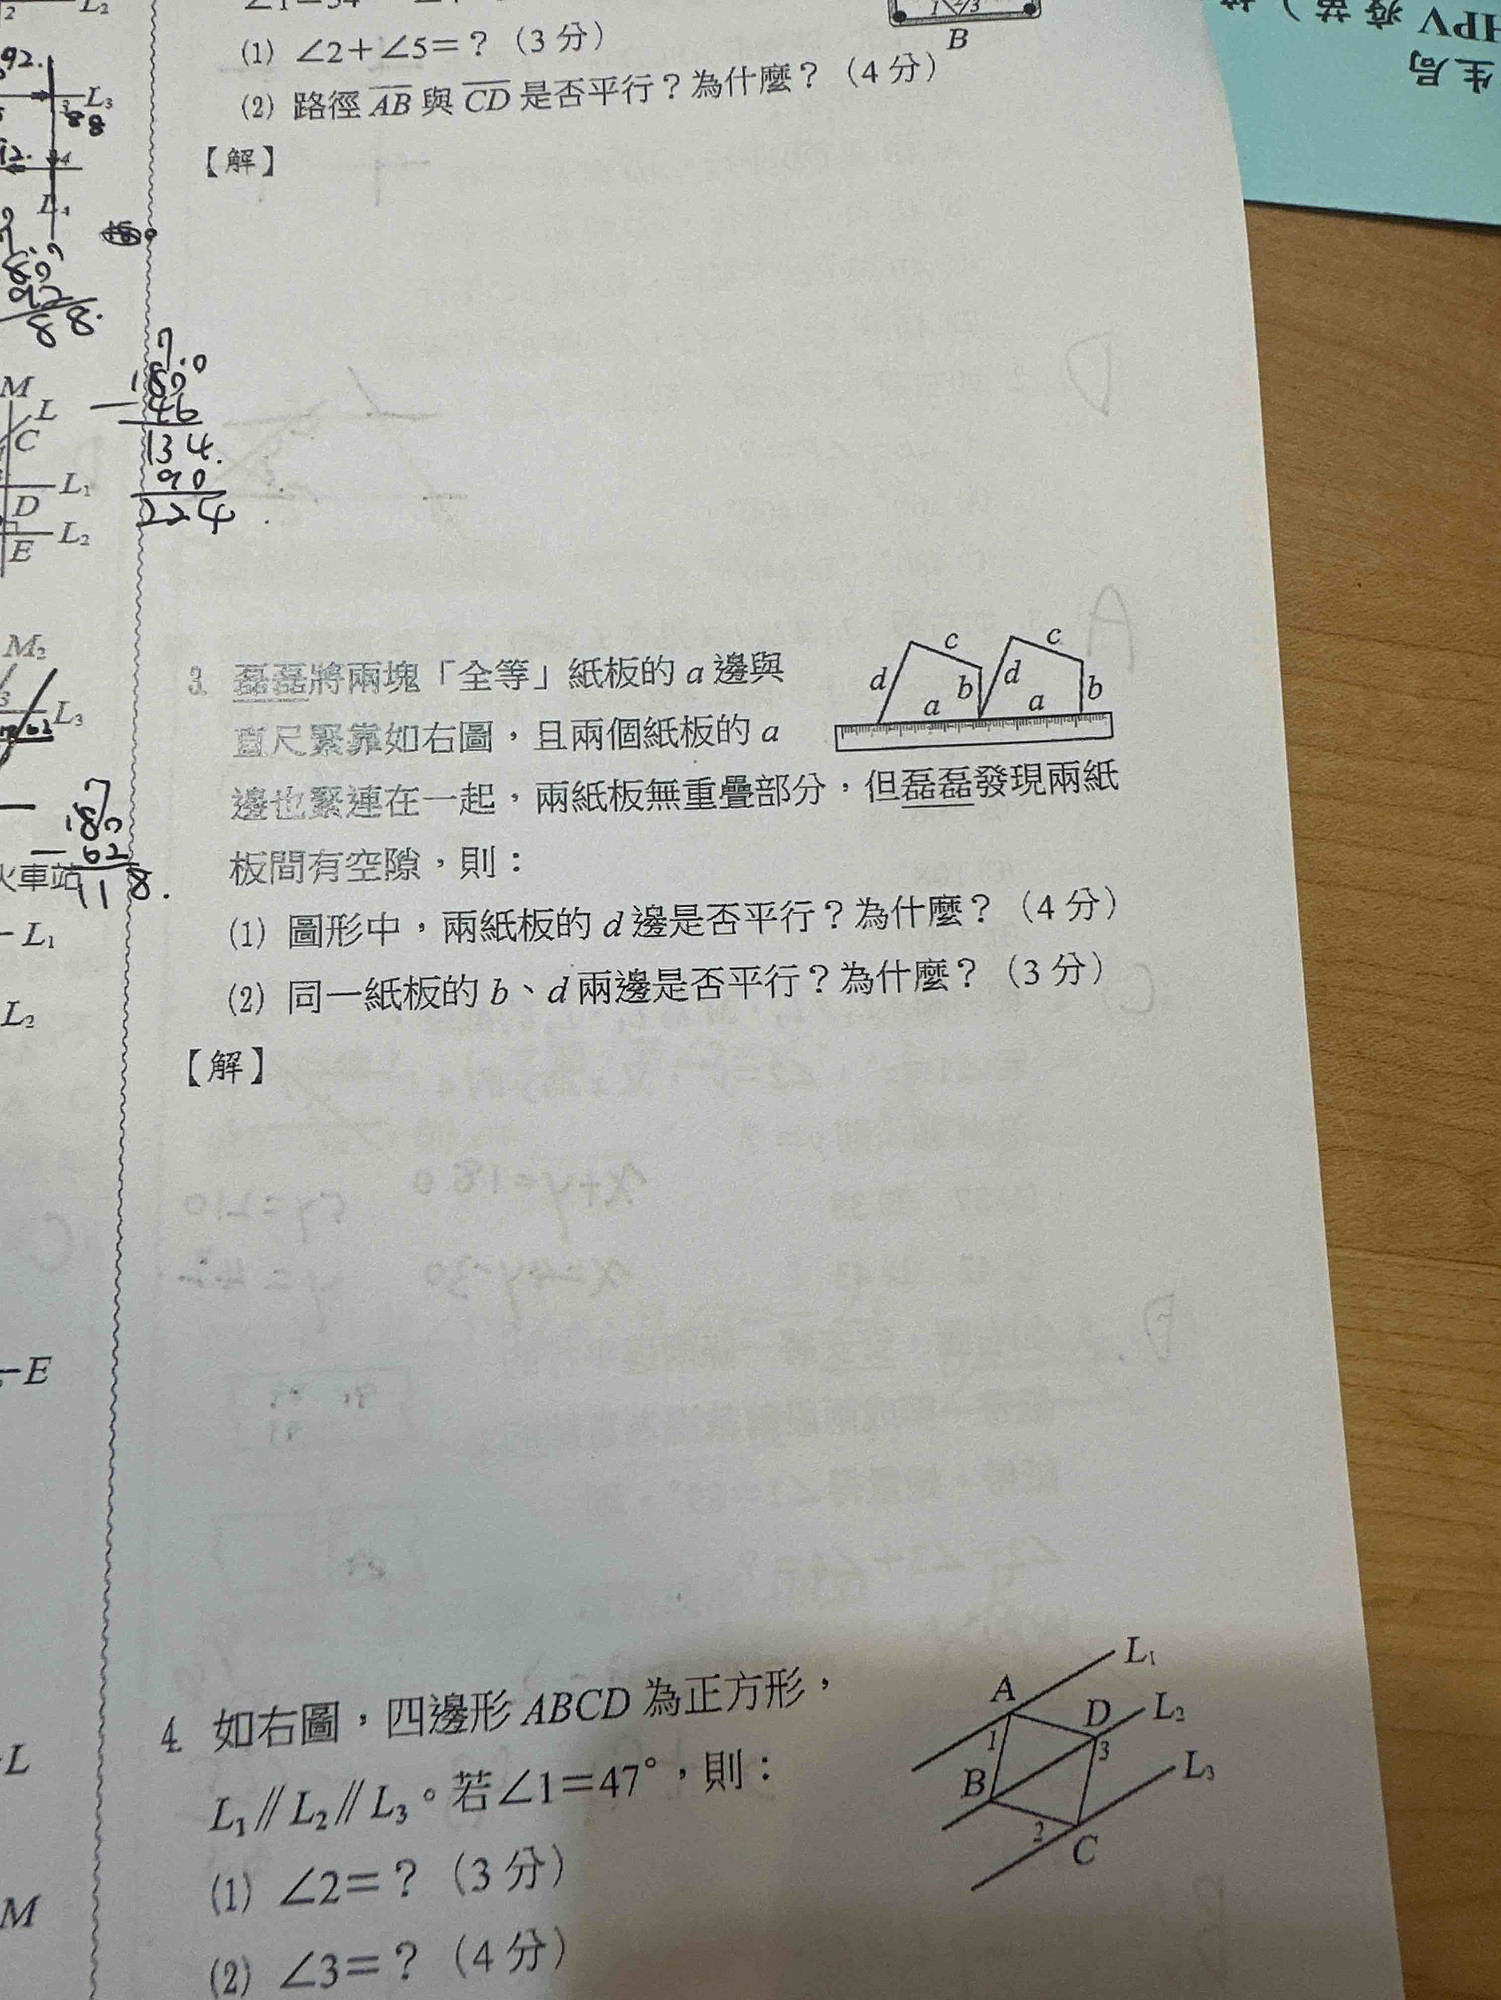 (1) ∠2+∠5=?(3分)
B
(2) 路徑 AB 與 CD 是否平行?為什麼?(4分)
【解】
92.
L₃
88
L₄
88.
7.0
180
- 46
134.
90
224
M
L
C
L₁
D
L₂
E
3. 磊磊將兩塊「全等」紙板的 a 邊與
直尺緊靠如右圖,且兩個紙板的 a
邊也緊連在一起,兩紙板無重疊部分,但磊磊發現兩紙
板間有空隙,則:
(1) 圖形中,兩紙板的 d 邊是否平行?為什麼?(4分)
(2) 同一紙板的 b、d 兩邊是否平行?為什麼?(3分)
【解】
c c
d b d b
a a
M₂
L₃
7
180
- 62
118.
火車站
L₁
L₂
E
L
M
4. 如右圖,四邊形 ABCD 為正方形,
L₁∥L₂∥L₃。若∠1=47°,則:
(1) ∠2=?(3分)
(2) ∠3=?(4分)
L₁
A
D L₂
1 3
B L₃
2
C
HPV 疫苗)
生局